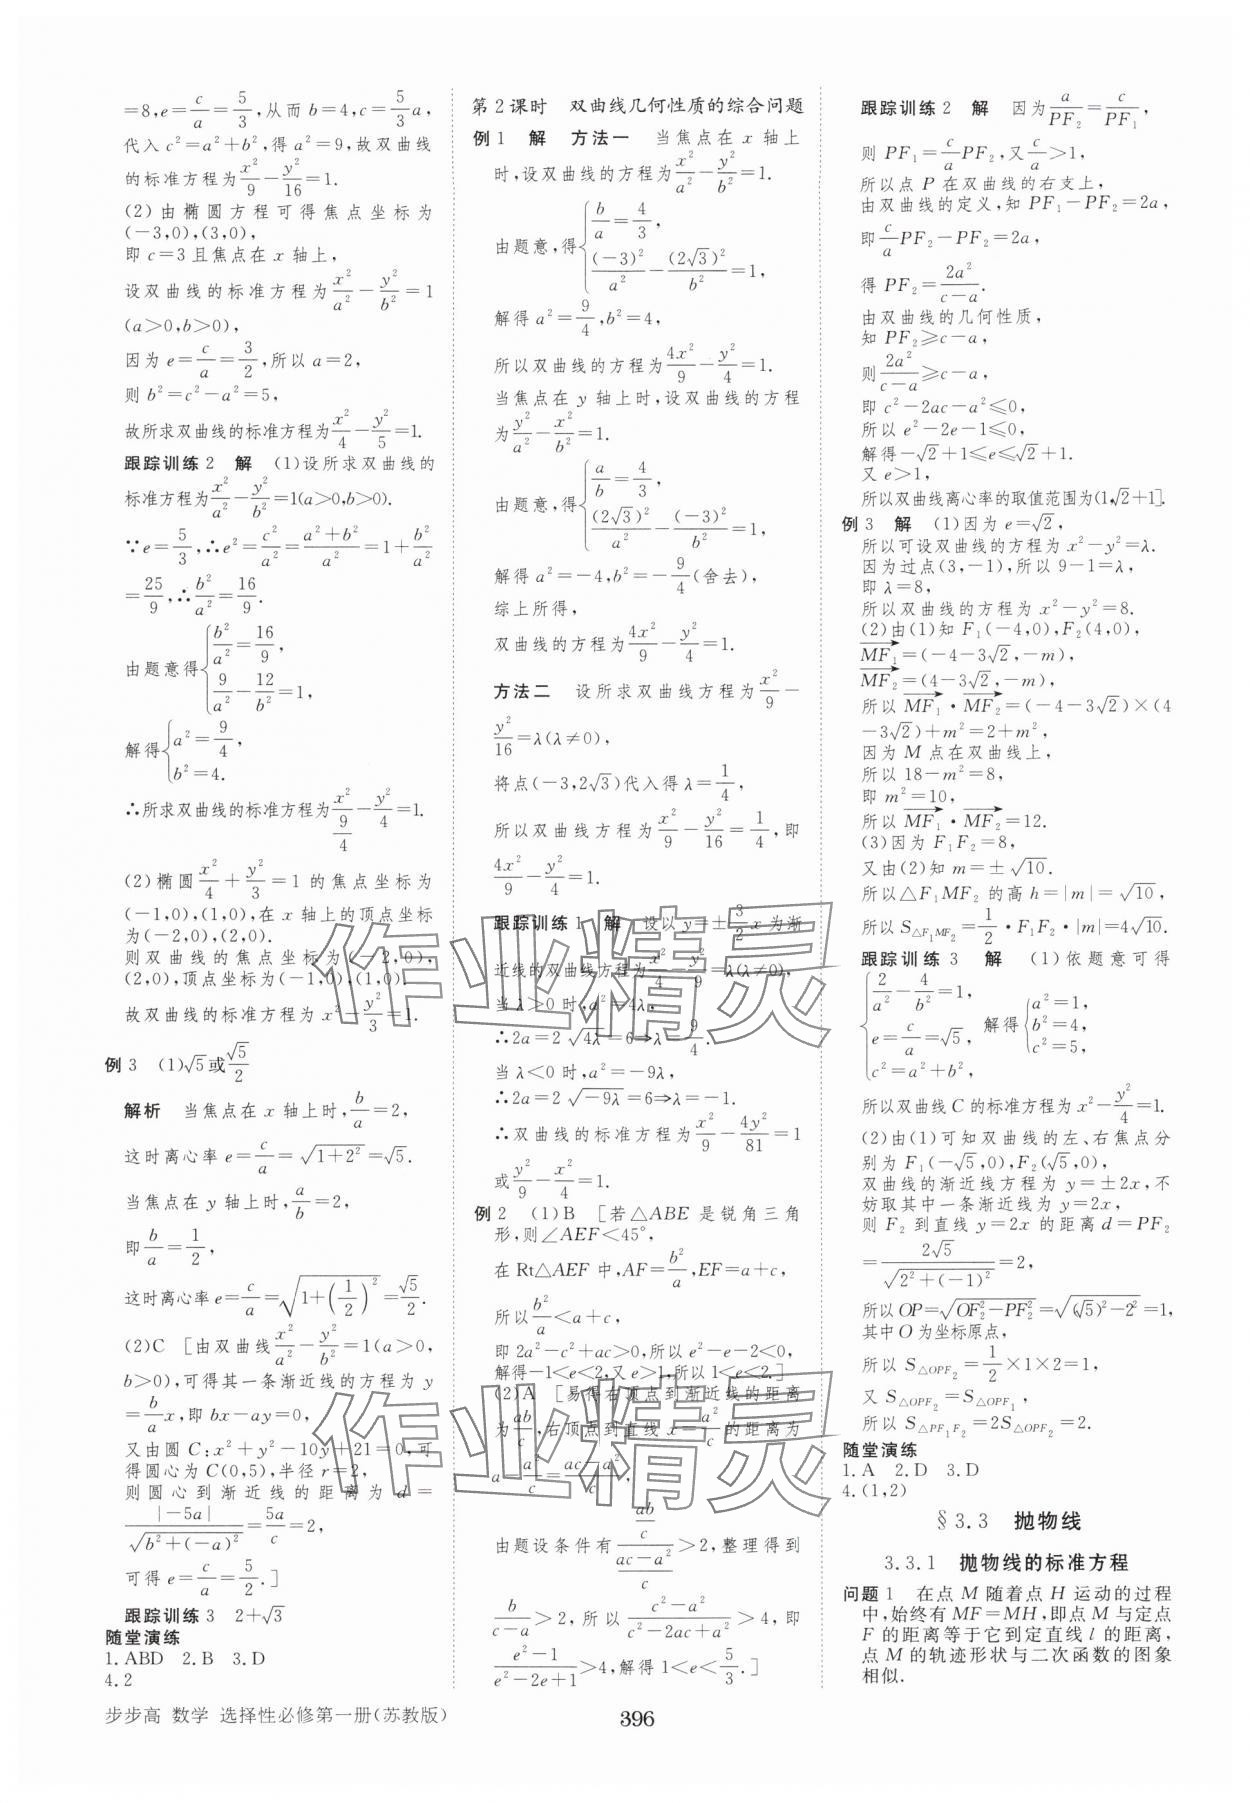 =8,e=c/a=5/3,从而b=4,c=5/3a,
代入c²=a²+b²,得a²=9,故双曲线
的标准方程为x²/9-y²/16=1.
(2)由椭圆方程可得焦点坐标为
(-3,0),(3,0),
即c=3且焦点在x轴上,
设双曲线的标准方程为x²/a²-y²/b²=1
(a>0,b>0),
因为e=c/a=3/2,所以a=2,
则b²=c²-a²=5,
故所求双曲线的标准方程为x²/4-y²/5=1.
跟踪训练2 解 (1)设所求双曲线的
标准方程为x²/a²-y²/b²=1(a>0,b>0).
∵e=5/3,∴e²=c²/a²=(a²+b²)/a²=1+b²/a²
=25/9,∴b²/a²=16/9.
由题意得{b²/a²=16/9,
9/a²-12/b²=1,
解得{a²=9/4,
b²=4.
∴所求双曲线的标准方程为x²/(9/4)-y²/4=1.
(2)椭圆x²/4+y²/3=1的焦点坐标为
(-1,0),(1,0),在x轴上的顶点坐标
为(-2,0),(2,0).
则双曲线的焦点坐标为(-2,0),
(2,0),顶点坐标为(-1,0),(1,0).
故双曲线的标准方程为x²-y²/3=1.
例3 (1)√5或√5/2
解析 当焦点在x轴上时,b/a=2,
这时离心率e=c/a=√(1+2²)=√5.
当焦点在y轴上时,a/b=2,
即b/a=1/2,
这时离心率e=c/a=√(1+(1/2)²)=√5/2.
(2)C [由双曲线x²/a²-y²/b²=1(a>0,
b>0),可得其一条渐近线的方程为y
=b/a x,即bx-ay=0,
又由圆C:x²+y²-10y+21=0,可
得圆心为C(0,5),半径r=2,
则圆心到渐近线的距离为d=
|-5a|/√(b²+(-a)²)=5a/c=2,
可得e=c/a=5/2.]
跟踪训练3 2+√3
随堂演练
1.ABD 2.B 3.D
4.2
第2课时 双曲线几何性质的综合问题
例1 解 方法一 当焦点在x轴上
时,设双曲线的方程为x²/a²-y²/b²=1.
由题意,得{b/a=4/3,
(-3)²/a²-(2√3)²/b²=1,
解得a²=9/4,b²=4,
所以双曲线的方程为4x²/9-y²/4=1.
当焦点在y轴上时,设双曲线的方程
为y²/a²-x²/b²=1.
由题意,得{a/b=4/3,
(2√3)²/a²-(-3)²/b²=1,
解得a²=-4,b²=-9/4(舍去),
综上所得,
双曲线的方程为4x²/9-y²/4=1.
方法二 设所求双曲线方程为x²/9-
y²/16=λ(λ≠0),
将点(-3,2√3)代入得λ=1/4,
所以双曲线方程为x²/9-y²/16=1/4,即
4x²/9-y²/4=1.
跟踪训练1 解 设以y=±3/2x为渐
近线的双曲线方程为x²/4-y²/9=λ(λ≠0),
当λ>0时,a²=4λ,
∴2a=2√4λ=6⇒λ=9/4.
当λ<0时,a²=-9λ,
∴2a=2√-9λ=6⇒λ=-1.
∴双曲线的标准方程为x²/9-4y²/81=1
或y²/9-x²/4=1.
例2 (1)B [若△ABE是锐角三角
形,则∠AEF<45°,
在Rt△AEF中,AF=b²/a,EF=a+c,
所以b²/a<a+c,
即2a²-c²+ac>0,所以e²-e-2<0,
解得-1<e<2,又e>1,所以1<e<2.]
(2)A [易得右顶点到渐近线的距离
为ab/c,右顶点到直线x=a²/c的距离为
a-a²/c=(ac-a²)/c,
由题设条件有(ab/c)/((ac-a²)/c)>2,整理得到
b/(c-a)>2,所以(c²-a²)/(c²-2ac+a²)>4,即
(e²-1)/(e²-2e+1)>4,解得1<e<5/3.]
跟踪训练2 解 因为a/PF₂=c/PF₁,
则PF₁=c/a PF₂,又c/a>1,
所以点P在双曲线的右支上,
由双曲线的定义,知PF₁-PF₂=2a,
即c/a PF₂-PF₂=2a,
得PF₂=2a²/(c-a).
由双曲线的几何性质,
知PF₂≥c-a,
则2a²/(c-a)≥c-a,
即c²-2ac-a²≤0,
所以e²-2e-1≤0,
解得-√2+1≤e≤√2+1.
又e>1,
所以双曲线离心率的取值范围为(1,√2+1].
例3 解 (1)因为e=√2,
所以可设双曲线的方程为x²-y²=λ.
因为过点(3,-1),所以9-1=λ,
即λ=8,
所以双曲线的方程为x²-y²=8.
(2)由(1)知F₁(-4,0),F₂(4,0),
MF₁=(-4-3√2,-m),
MF₂=(4-3√2,-m),
所以MF₁·MF₂=(-4-3√2)×(4
-3√2)+m²=2+m²,
因为M点在双曲线上,
所以18-m²=8,
即m²=10,
所以MF₁·MF₂=12.
(3)因为F₁F₂=8,
又由(2)知m=±√10.
所以△F₁MF₂的高h=|m|=√10,
所以S△F₁MF₂=1/2·F₁F₂·|m|=4√10.
跟踪训练3 解 (1)依题意可得
{2/a²-4/b²=1,
e=c/a=√5,
c²=a²+b²,
解得{a²=1,
b²=4,
c²=5,
所以双曲线C的标准方程为x²-y²/4=1.
(2)由(1)可知双曲线的左、右焦点分
别为F₁(-√5,0),F₂(√5,0),
双曲线的渐近线方程为y=±2x,不
妨取其中一条渐近线为y=2x,
则F₂到直线y=2x的距离d=PF₂
=2√5/√(2²+(-1)²)=2,
所以OP=√(OF₂²-PF₂²)=√((√5)²-2²)=1,
其中O为坐标原点,
所以S△OPF₂=1/2×1×2=1,
又S△OPF₂=S△OPF₁,
所以S△PF₁F₂=2S△OPF₂=2.
随堂演练
1.A 2.D 3.D
4.(1,2)
§3.3 抛物线
3.3.1 抛物线的标准方程
问题1 在点M随着点H运动的过程
中,始终有MF=MH,即点M与定点
F的距离等于它到定直线l的距离,
点M的轨迹形状与二次函数的图象
相似.
步步高 数学 选择性必修第一册(苏教版)
396
作业精灵
作业精灵